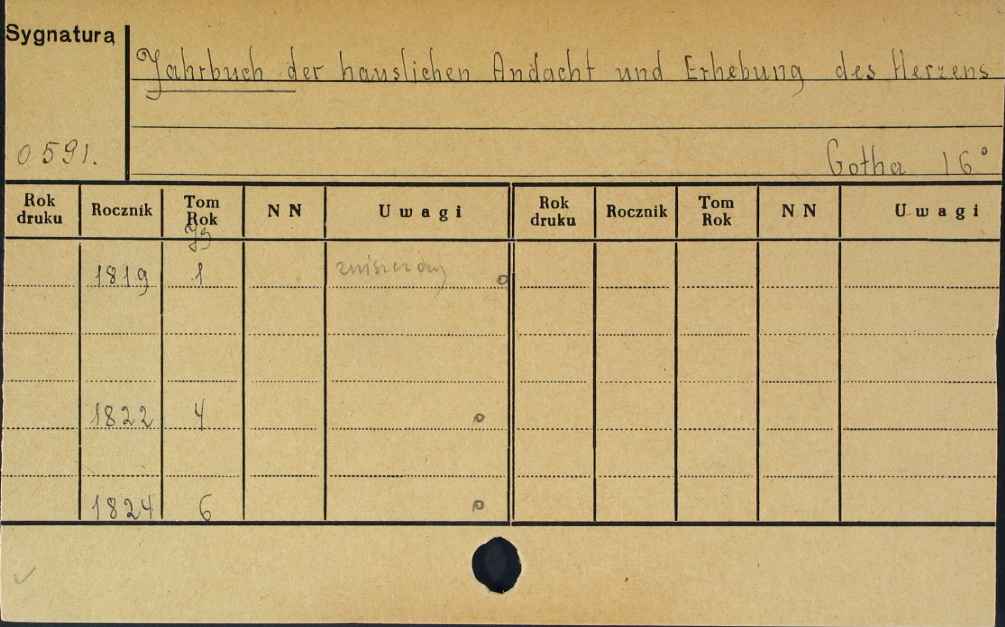 Sygnatura
Jahrbuch der hauslichen Andacht und Erhebung des Herzens
0591.
Gotha 16°
Rok druku Rocznik Tom Rok NN Uwagi Rok druku Rocznik Tom Rok NN Uwagi
Jg
1819 1 zniszczony
1822 4
1824 6